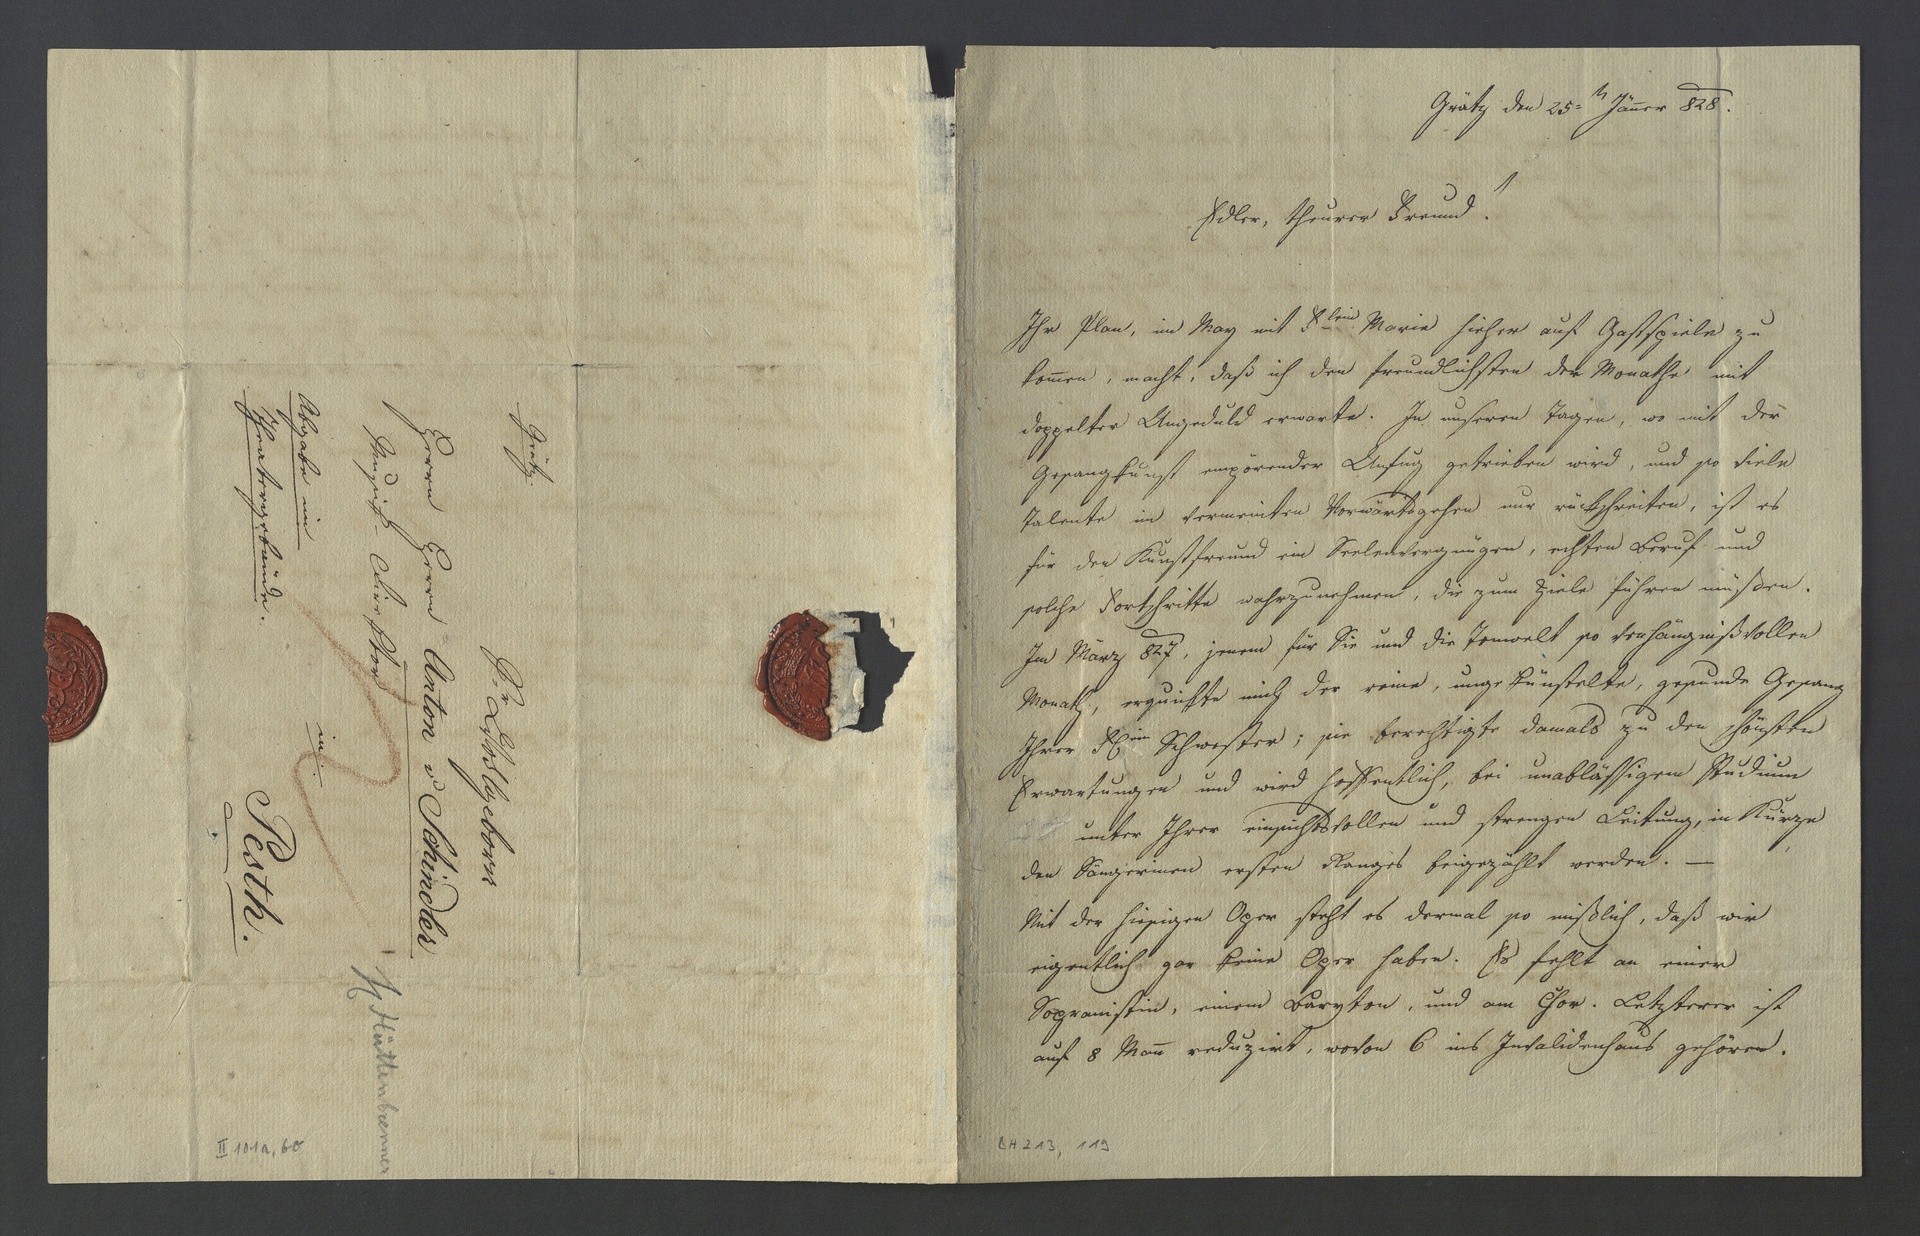 Grätz.
Sr Wohlgeborn
Herrn Herrn Anton v Schindler
Musick-Direktor
in
Pesth.
Abgabe im
Theatergebäude.
Hüttenbrenner
II 101a, 60
Grätz den 25=t Jäner 828.
Edler, theurer Freund!
Ihr Plan, im May mit Frlein Marie hieher auf Gastspiele zu
komen, macht, daß ich den freundlichsten der Monathe mit
doppelter Ungeduld erwarte. In unseren Tagen, wo mit der
Gesangkunst empörender Unfug getrieben wird, und so viele
Talente im vermeinten Vorwärtsgehen nur rückschreiten, ist es
für den Kunstfreund ein Seelenvergnügen, echten Beruf und
solche Fortschritte wahrzunehmen, die zum Ziele führen müssen.
Im März 827, jenem für Sie und die Tonwelt so verhängnißvollen
Monath, erquickte mich der reine, ungekünstelte, gesunde Gesang
Ihrer Schwester; sie berechtigte damals zu den schönsten
Erwartungen und wird hoffentlich, bei unabläßigem Studium
unter Ihrer einsichtsvollen und strengen Leitung, in Kürze
den Sängerinen ersten Ranges beigezählt werden. —
Mit der hiesigen Oper steht es dermal so mißlich, daß wir
eigentlich gar keine Oper haben. Es fehlt an einer
Sopranistin, einem Baryton, und am Chor. Letzterer ist
auf 8 Man reduzirt, wovon 6 ins Invalidenhaus gehören.
BH 213, 119